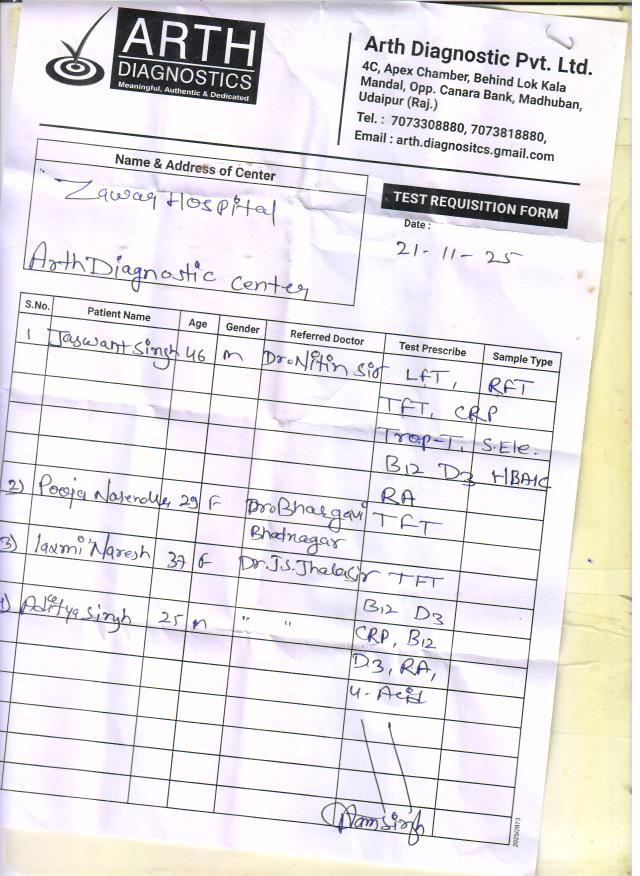 ARTH
DIAGNOSTICS
Meaningful, Authentic & Dedicated
Arth Diagnostic Pvt. Ltd.
4C, Apex Chamber, Behind Lok Kala
Mandal, Opp. Canara Bank, Madhuban,
Udaipur (Raj.)
Tel. : 7073308880, 7073818880,
Email : arth.diagnositcs.gmail.com
Name & Address of Center
Zawar Hospital
Arth Diagnostic center
TEST REQUISITION FORM
Date :
21-11-25
S.No. Patient Name Age Gender Referred Doctor Test Prescribe Sample Type
1 Jaswant Singh 46 m Dr. Nitin Sir LFT, RFT
TFT, CRP
Trop-T, S.Ele.
B12 D3 HBA1C
RA
2) Pooja 29 F Dr. Bhargavi TFT
Bhatnagar
3) laxmi Naresh 37 F Dr. J.S. Jhala Sir TFT
B12 D3
Aditya Singh 25 m " " CRP, B12
D3, RA,
U-Acid
2025/2873